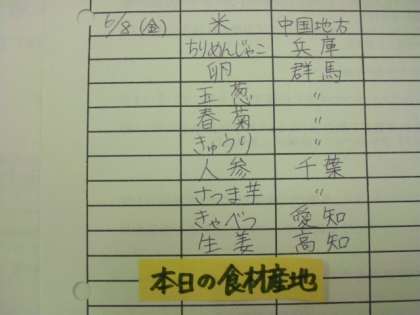 6/8(金) 米 中国地方
ちりめんじゃこ 兵庫
卵 群馬
玉葱 〃
春菊 〃
きゅうり 〃
人参 千葉
さつま芋 〃
きゃべつ 愛知
生姜 高知
本日の食材産地